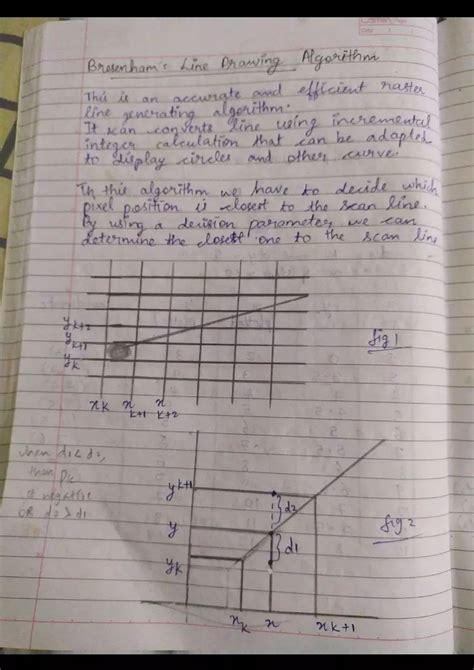 Bresenham's Line Drawing Algorithm
This is an accurate and efficient raster
line generating algorithm.
It scan converts line using incremental
integer calculation that can be adapted
to display circles and other curve.
In this algorithm we have to decide which
pixel position is closest to the scan line.
By using a decision parameter, we can
determine the closest one to the scan line
yk+2
yk+1
yk
fig 1
xk
xk+1
xk+2
when d1<d2,
then Pk
is negative
OR d2>d1
yk+1
d2
y
d1
yk
fig 2
xk
x
xk+1